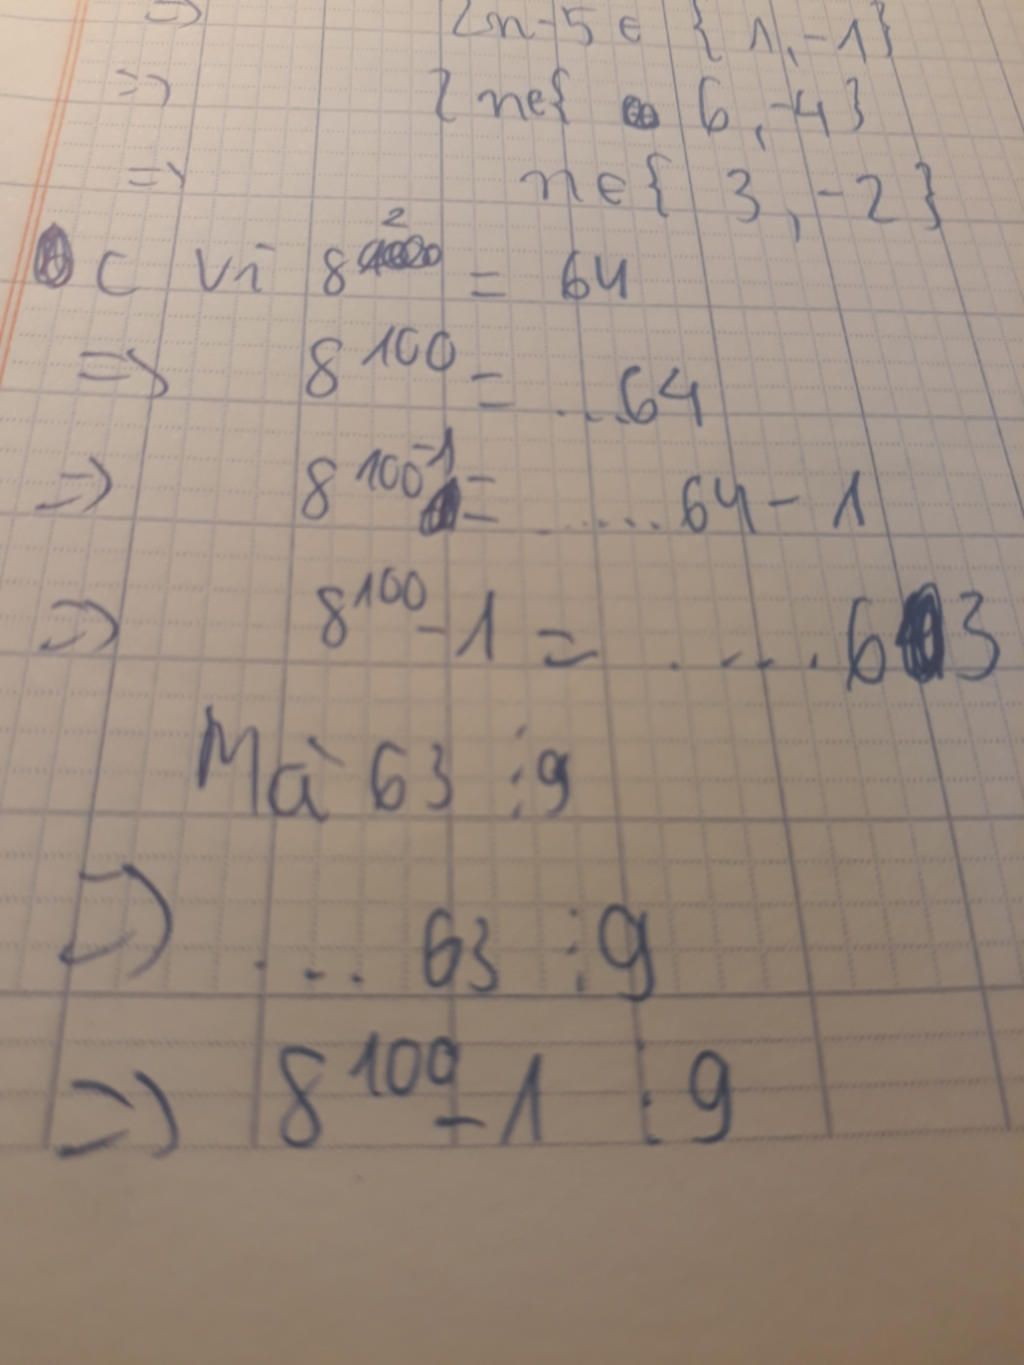 => 2n-5 ∈ { 1, -1}
=> 2 n∈{ 6, -4}
=> n ∈{ 3, -2}
C Vì 8² = 64
=> 8¹⁰⁰ = ...64
=> 8¹⁰⁰-1 = ......64 - 1
=> 8¹⁰⁰ - 1 = .....63
Mà 63 ⋮ 9
=> ... 63 ⋮ 9
=> 8¹⁰⁰ - 1 ⋮ 9